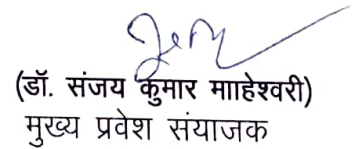 (डॉ. संजय कुमार मााहेश्वरी)
मुख्य प्रवेश संयाजक